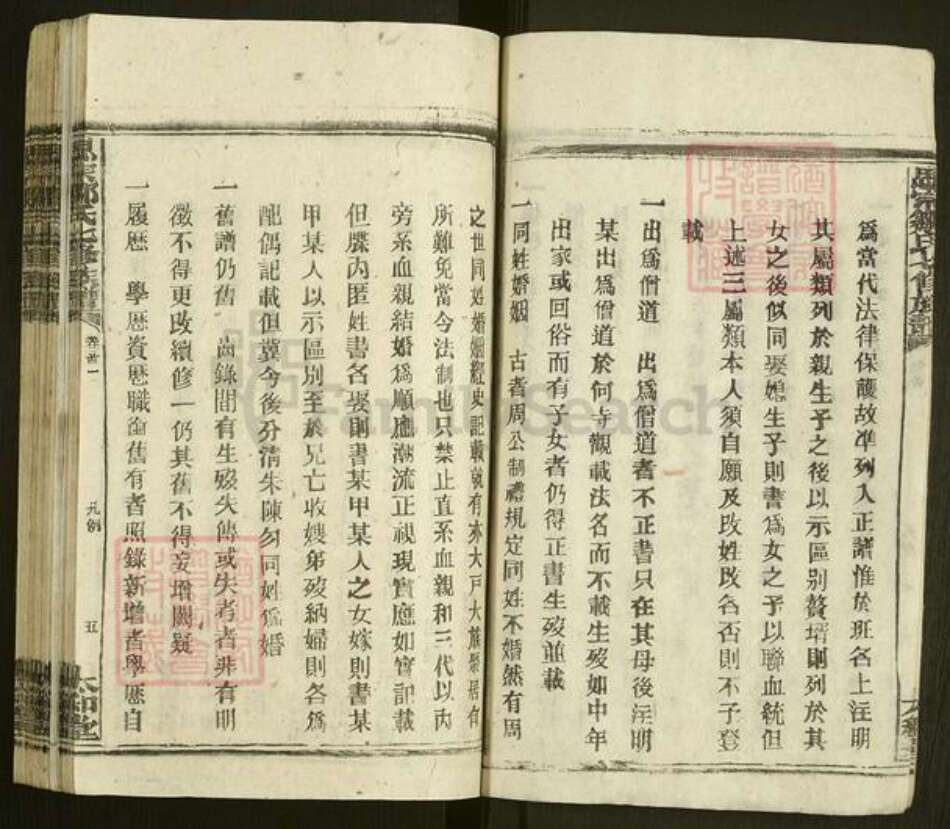 為當代法律保護故準列入正譜惟於班名上注明
其屬類列於親生子之後以示區別贅壻則列於其
女之後似同娶媳生子則書為女之子以聯血統但
上述三屬類本人須自願及改姓改名否則不予登
載
一出為僧道　出為僧道者不正書只在其母後注明
某出為僧道於何寺觀載法名而不載生歿如中年
出家或回俗而有子女者仍得正書生歿並載
一同姓婚姻　古者周公制禮規定同姓不婚然有周
之世同姓婚姻經史記載就有亦大戶大族聚居有
所難免當今法制也只禁止直系血親和三代以內
旁系血親結婚為順應潮流正視現實應如實記載
但牒內匿姓書名娶則書某甲某人之女嫁則書某
甲某人以示區別至於兄亡收嫂弟歿納婦則各為
配偶記載但冀今後分清朱陳勿同姓為婚
一舊譜仍舊　齒錄間有生歿失傳或失考者非有明
徵不得更改續修一仍其舊不得妄增闕疑
一履歷　學歷資歷職銜舊有者照錄新增者學歷自
卷首一
凡例
五
太和堂
FamilySearch